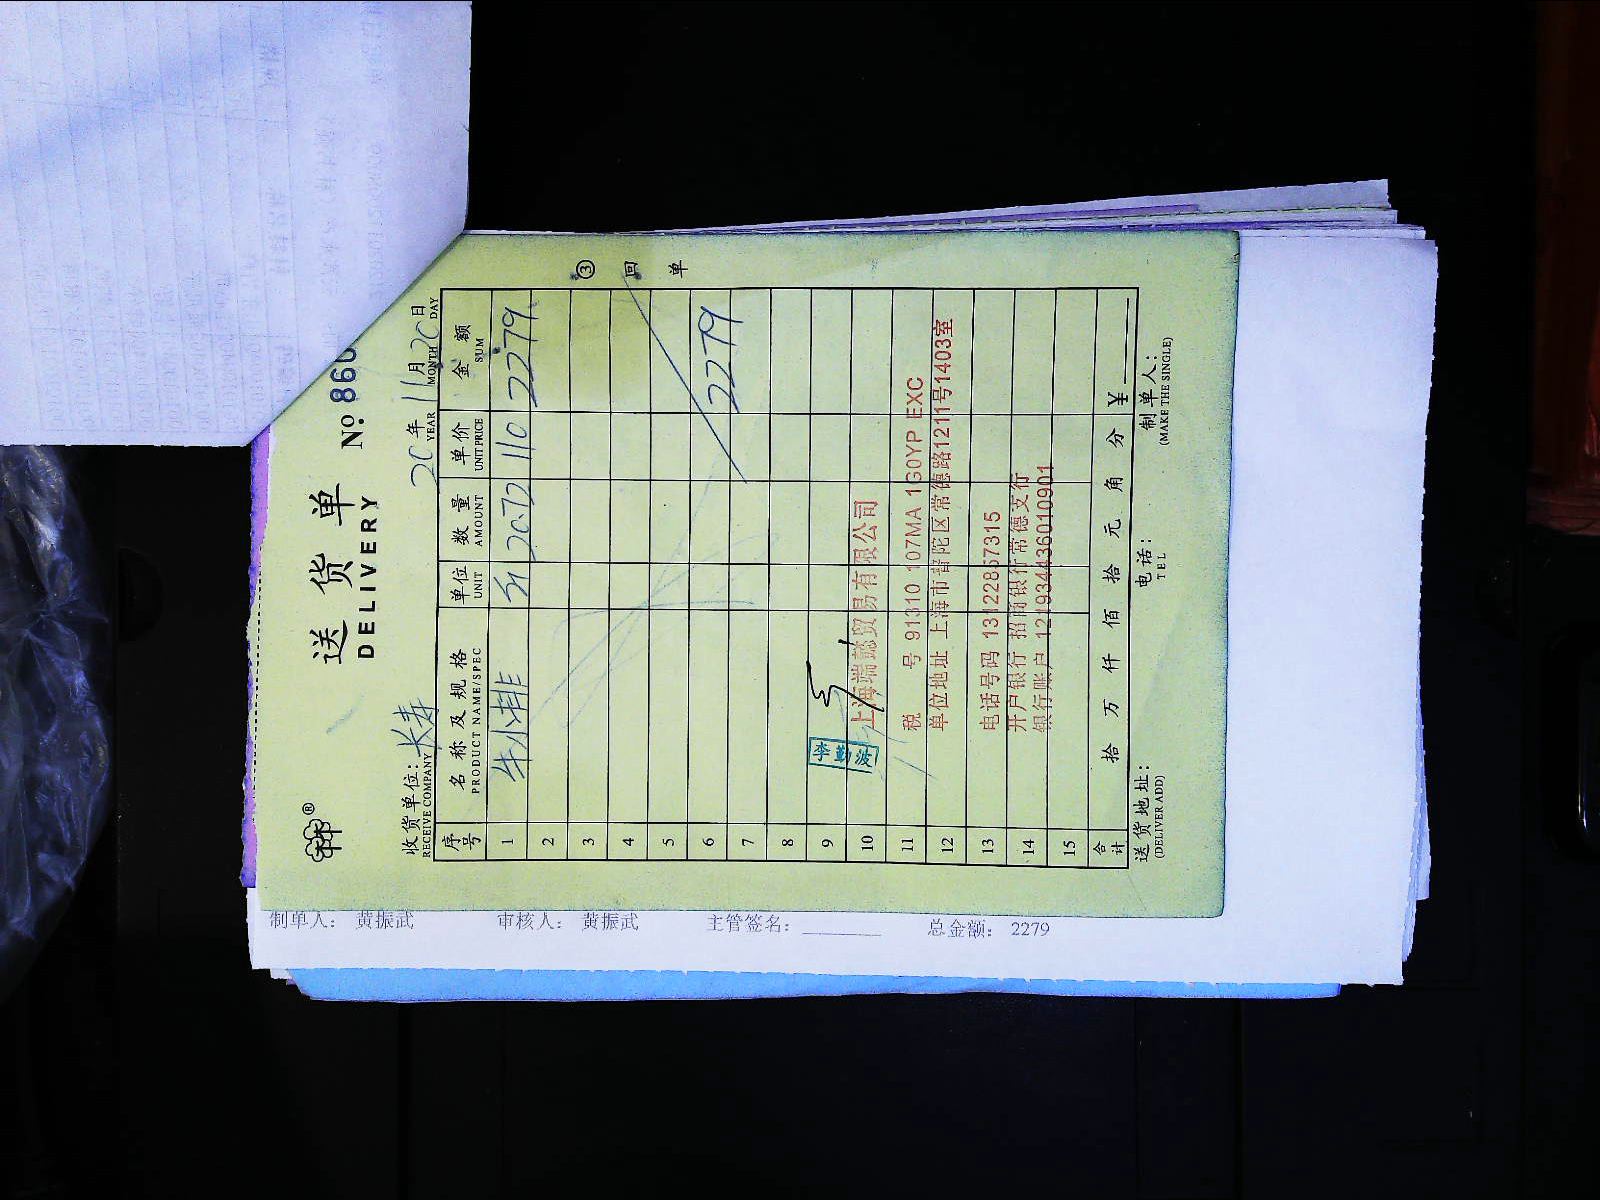 送货单
DELIVERY
№: 860
收货单位: 长寿
RECEIVE COMPANY
20年 11月 20日
YEAR MONTH DAY
序号 名称及规格 单位 数量 单价 金额
PRODUCT NAME/SPEC UNIT AMOUNT UNIT PRICE SUM
1 牛小排 斤 2072 110 2279
2
3
4
5
6 2279
7
8
9
10 上海端懿贸易有限公司
11 税 号 91310 107MA 1G0YP EXC
12 单位地址 上海市普陀区常德路1211号1403室
13 电话号码 13122857315
14 开户银行 招商银行常德支行
15 银行账户 121934436010901
李勤波
合计 拾 万 仟 佰 拾 元 角 分 ¥
送货地址: 电话: 制单人:
(DELIVER ADD) TEL (MAKE THE SINGLE)
③ 回单
制单人: 黄振武 审核人: 黄振武 主管签名: 总金额: 2279